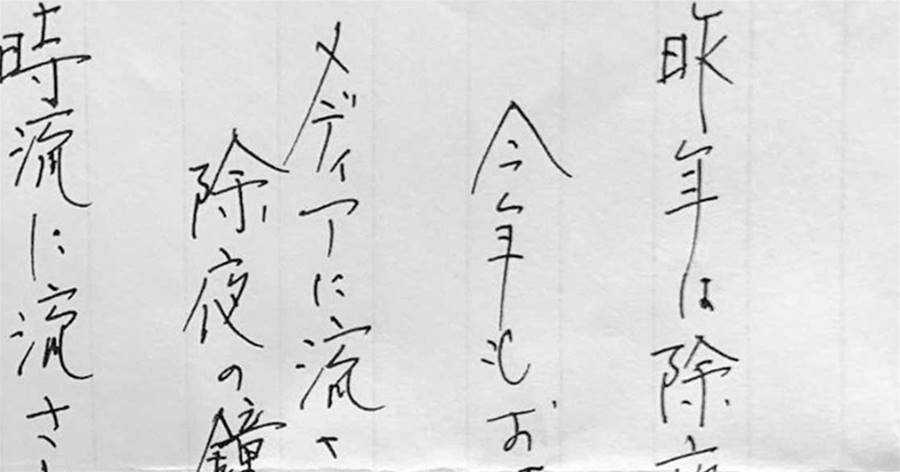 昨年は除夜
今年もお
メディアに流さ
除夜の鐘
時流に流され